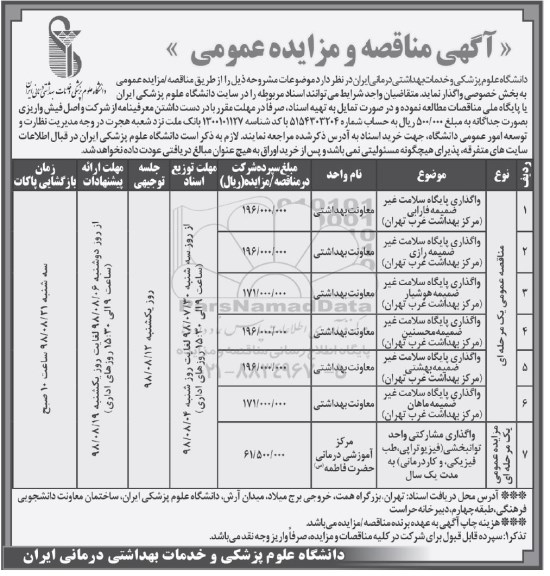 « آگهی مناقصه و مزایده عمومی »
دانشگاه علوم پزشکی و خدمات بهداشتی درمانی ایران
دانشگاه علوم پزشکی و خدمات بهداشتی درمانی ایران در نظر دارد موضوعات مشروحه ذیل را از طریق مناقصه/مزایده عمومی
به بخش خصوصی واگذار نماید. متقاضیان واجد شرایط می‌توانند اسناد مربوطه را در سایت دانشگاه علوم پزشکی ایران
یا پایگاه ملی مناقصات مطالعه نموده و در صورت تمایل به تهیه اسناد، صرفا در مهلت مقرر با در دست داشتن معرفینامه از شرکت و اصل فیش واریزی
بصورت جداگانه به مبلغ ۵۰۰/۰۰۰ ریال به حساب شماره ۵۱۵۴۳۰۳۲۰۴ با کد شناسه ۱۱۲۷-۱۳۰۰۱ بانک ملت نزد شعبه هجرت در وجه مدیریت نظارت و
توسعه امور عمومی دانشگاه، جهت خرید اسناد به آدرس ذکر شده مراجعه نمایند. لازم به ذکر است دانشگاه علوم پزشکی ایران در قبال اطلاعات
سایت های متفرقه، پذیرای هیچگونه مسئولیتی نمی باشد و پس از خرید اوراق به هیچ عنوان مبالغ دریافتی عودت داده نخواهد شد.
ردیف | نوع | موضوع | نام واحد | مبلغ سپرده شرکت در مناقصه/مزایده(ریال) | مهلت توزیع اسناد | جلسه توجیهی | مهلت ارائه پیشنهادات | زمان بازگشایی پاکات
۱ | واگذاری پایگاه سلامت غیر ضمیمه فارابی (مرکز بهداشت غرب تهران) | معاونت بهداشتی | ۱۹۶/۰۰۰/۰۰۰
۲ | واگذاری پایگاه سلامت غیر ضمیمه رازی (مرکز بهداشت غرب تهران) | معاونت بهداشتی | ۱۹۶/۰۰۰/۰۰۰
۳ | واگذاری پایگاه سلامت غیر ضمیمه هوشیار (مرکز بهداشت غرب تهران) | معاونت بهداشتی | ۱۷۱/۰۰۰/۰۰۰
۴ | واگذاری پایگاه سلامت غیر ضمیمه محسنین (مرکز بهداشت غرب تهران) | معاونت بهداشتی | ۱۹۶/۰۰۰/۰۰۰
۵ | واگذاری پایگاه سلامت غیر ضمیمه بهشتی (مرکز بهداشت غرب تهران) | معاونت بهداشتی | ۱۹۶/۰۰۰/۰۰۰
۶ | واگذاری پایگاه سلامت غیر ضمیمه ماهان (مرکز بهداشت غرب تهران) | معاونت بهداشتی | ۱۷۱/۰۰۰/۰۰۰
مناقصه عمومی یک مرحله ای
۷ | مزایده عمومی یک مرحله ای | واگذاری مشارکتی واحد توانبخشی(فیزیوتراپی،طب فیزیکی، و کاردرمانی) به مدت یک سال | مرکز آموزشی درمانی حضرت فاطمه(س) | ۶۱/۵۰۰/۰۰۰
از روز سه شنبه ۹۸/۰۷/۳۰ لغایت روز شنبه ۹۸/۰۸/۰۴
(ساعت ۹ الی ۱۵:۳۰ روزهای اداری)
روز یکشنبه ۹۸/۰۸/۱۲
از روز دوشنبه ۹۸/۰۸/۰۶ لغایت روز یکشنبه ۹۸/۰۸/۱۹
(ساعت ۹ الی ۱۵:۳۰ روزهای اداری)
سه شنبه ۹۸/۰۸/۲۱ ساعت ۱۰ صبح
ParsNamadData
پایگاه اطلاع رسانی مناقصه و مزایده
۰۲۱-۸۸۳۴۹۶۷۰-۵
※※※ آدرس محل دریافت اسناد: تهران، بزرگراه همت، خروجی برج میلاد، میدان آرش، دانشگاه علوم پزشکی ایران، ساختمان معاونت دانشجویی
فرهنگی، طبقه چهارم، دبیرخانه حراست
※※※ هزینه چاپ آگهی به عهده برنده مناقصه/مزایده می‌باشد.
تذکر۱: سپرده قابل قبول برای شرکت در کلیه مناقصات و مزایده، صرفاً واریز وجه نقد می‌باشد.
دانشگاه علوم پزشکی و خدمات بهداشتی درمانی ایران